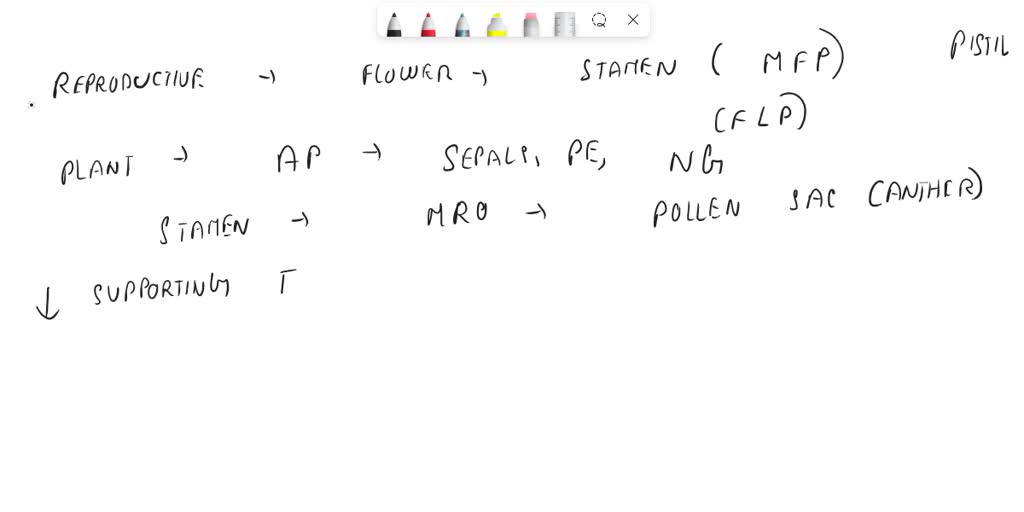 REPRODUCTIVE → FLOWER → STAMEN ( MFP) PISTIL
(FLP)
PLANT → AP → SEPALS, PE, NG
STAMEN → MRO → POLLEN SAC (ANTHER)
↓ SUPPORTING T